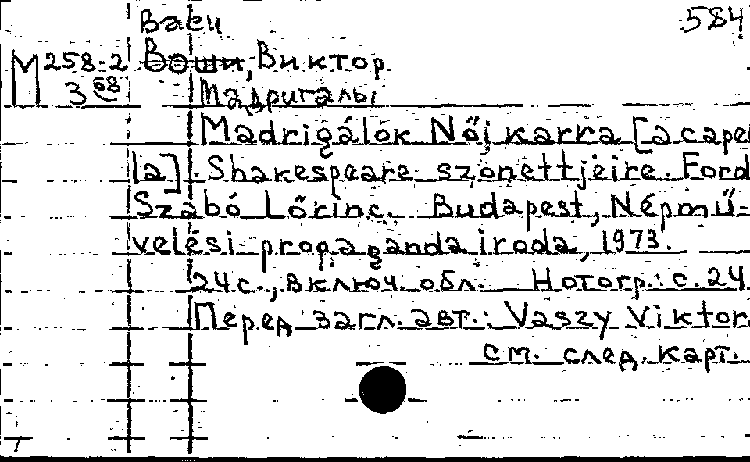 584
Васи
М 258-2 Воши, Виктор.
3 68 Мадригалы
Madrigálok Nőikarra [a capel
la]. Shakespeare szonettjeire. Ford
Szabó Lőrinc. Budapest, Népmű-
velési propaganda iroda, 1973.
24 с., включ. обл. Нотогр.: с. 24
Перед загл. авт.: Vaszy Viktor
см. след. карт.